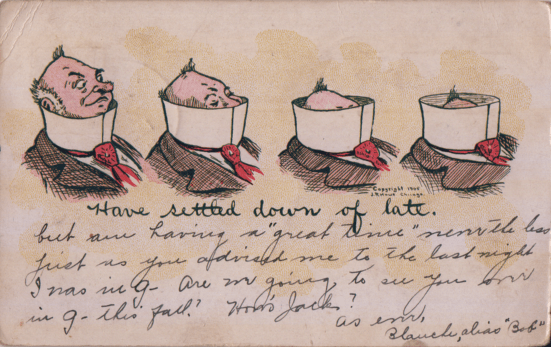 Copyright 1905
Chicago.
Have settled down of late.
but am having a "great time" never the less
just as you advised me to the last night
I was in G- Are we going to see you over
in G- this fall? How's Jack?
As ever,
Blanche, alias "Bob"